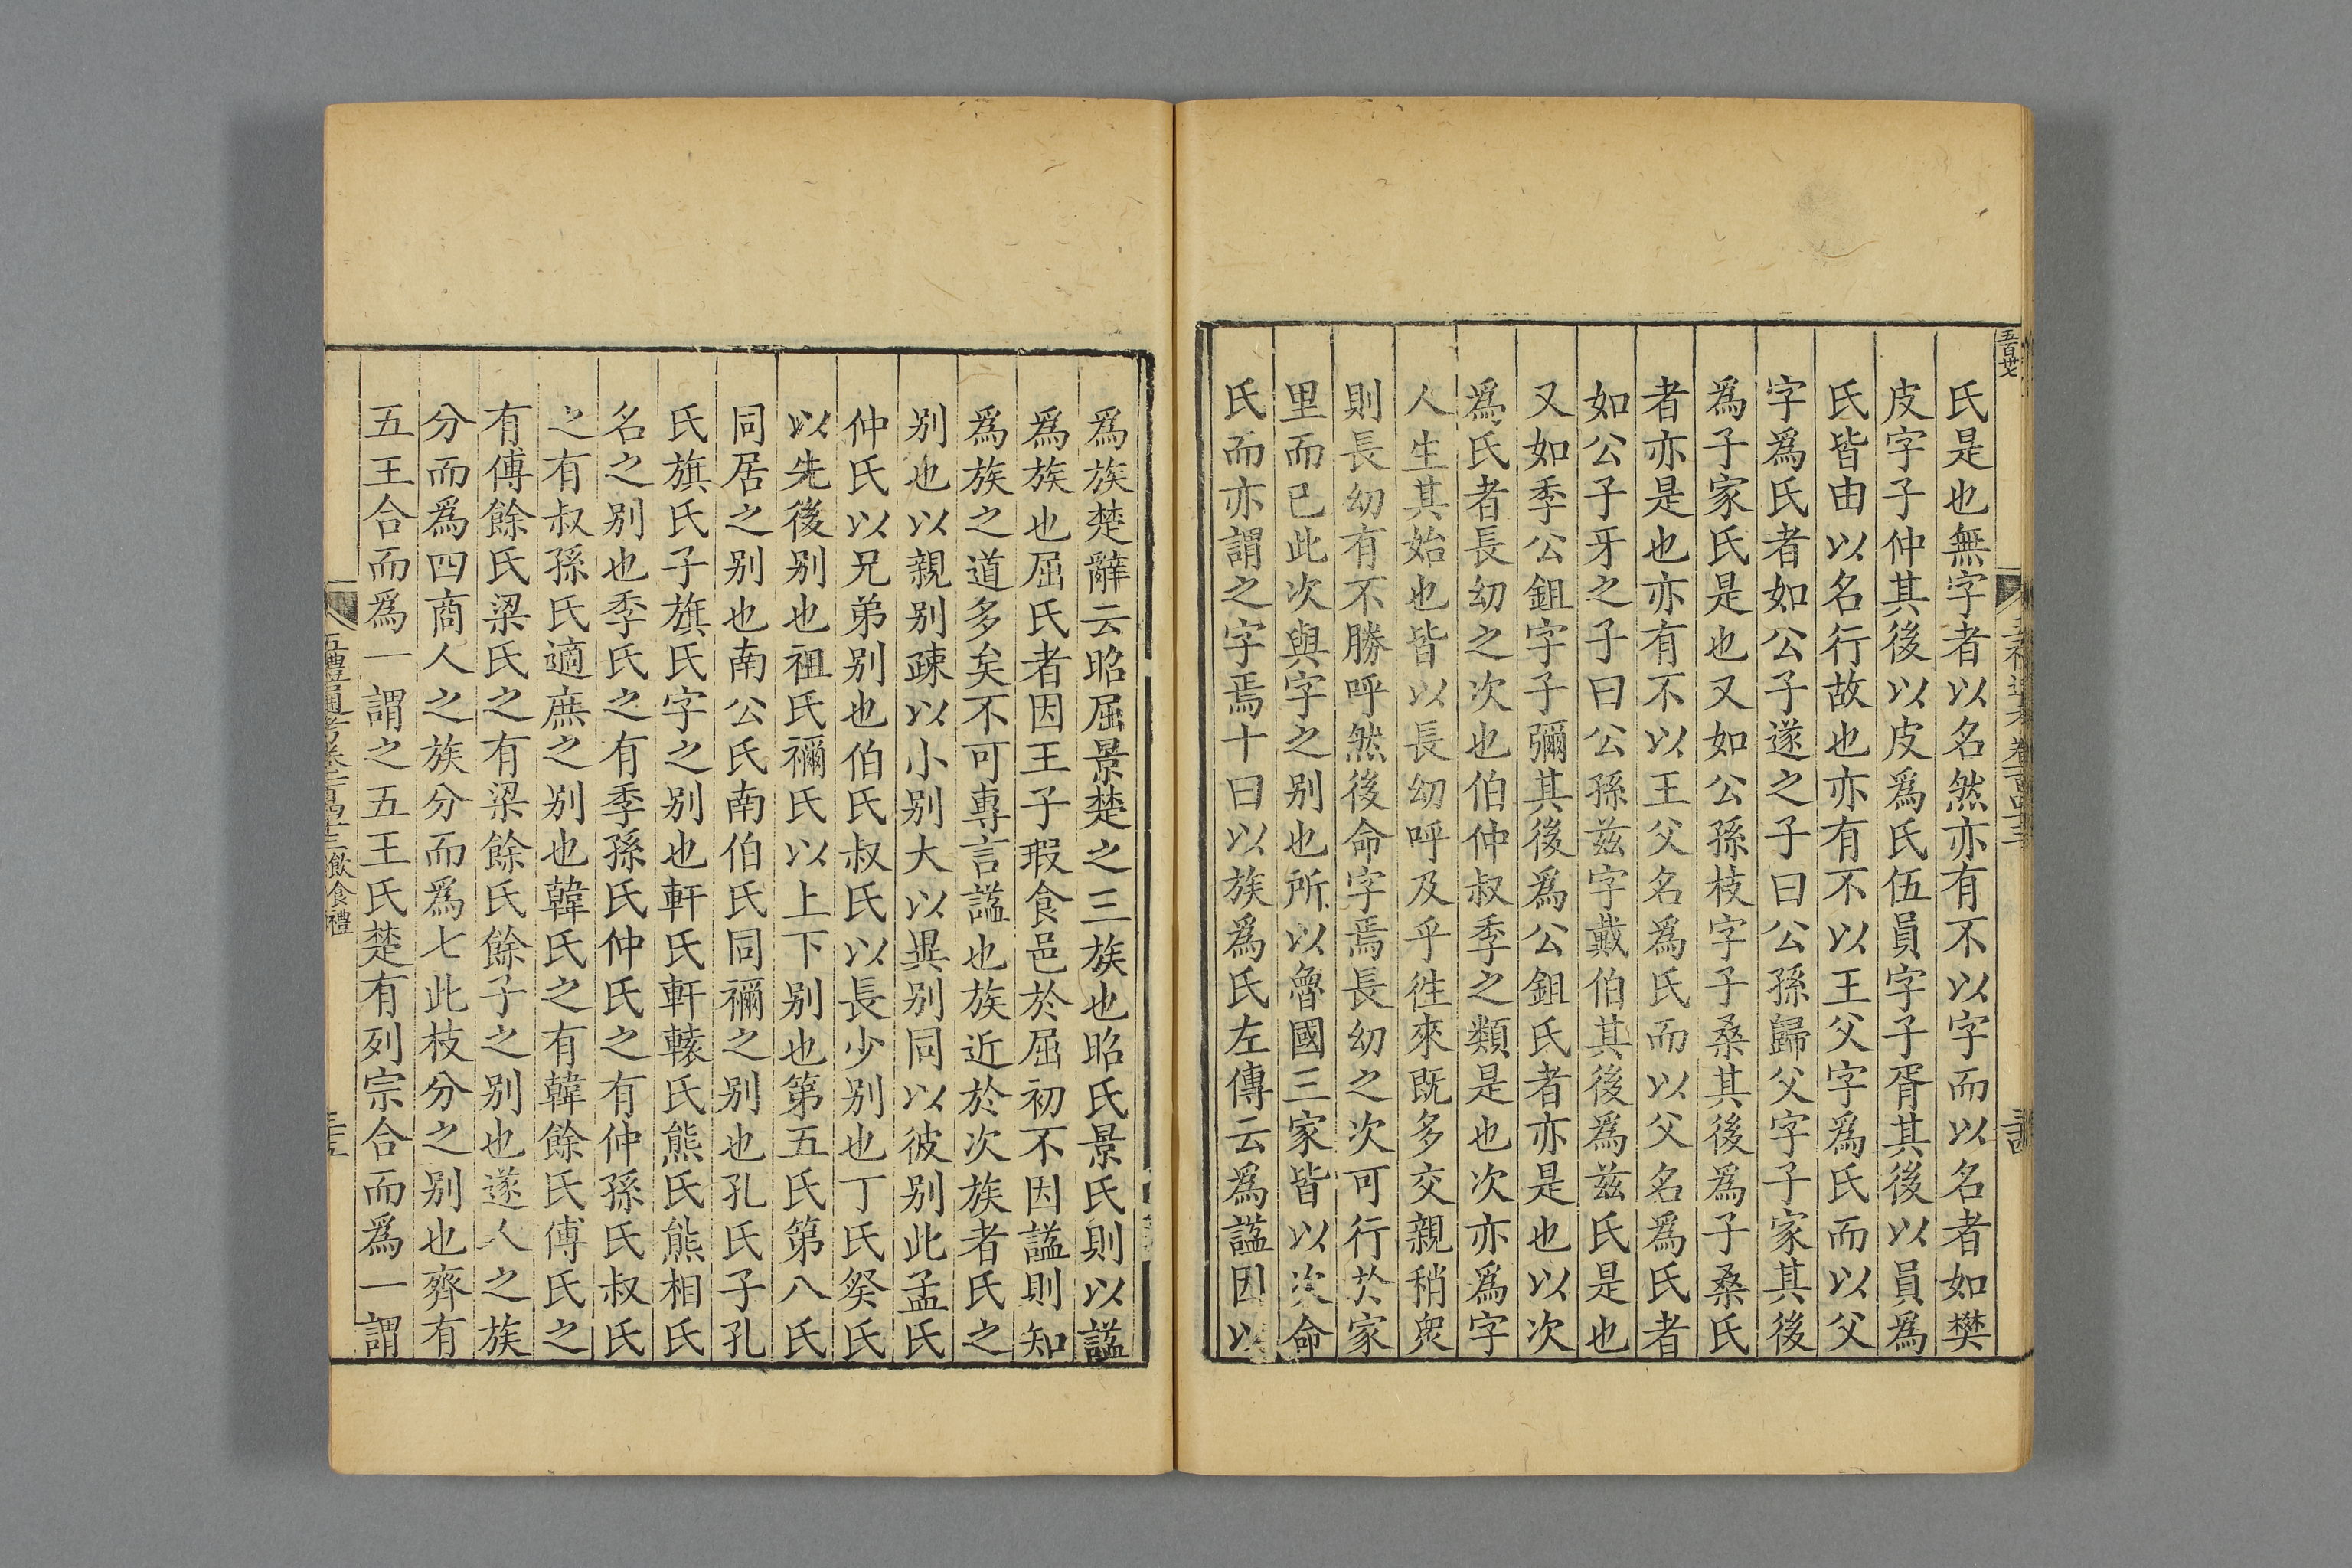 氏是也無字者以名然亦有不以字而以名者如樊
皮字子仲其後以皮爲氏伍員字子胥其後以員爲
氏皆由以名行故也亦有不以王父字爲氏而以父
字爲氏者如公子遂之子曰公孫歸父字子家其後
爲子家氏是也又如公孫枝字子桑其後爲子桑氏
者亦是也亦有不以王父名爲氏而以父名爲氏者
如公子牙之子曰公孫兹字戴伯其後爲兹氏是也
又如季公鉏字子彌其後爲公鉏氏者亦是也以次
爲氏者長幼之次也伯仲叔季之類是也次亦爲字
人生其始也皆以長幼呼及乎徃來既多交親稍衆
則長幼有不勝呼然後命字焉長幼之次可行於家
里而已此次與字之别也所以魯國三家皆以次命
氏而亦謂之字焉十曰以族爲氏左傳云爲諡因以
爲族楚辭云昭屈景楚之三族也昭氏景氏則以諡
爲族也屈氏者因王子瑕食邑於屈初不因諡則知
爲族之道多矣不可專言諡也族近於次族者氏之
别也以親别疎以小别大以異别同以彼别此孟氏
仲氏以兄弟别也伯氏叔氏以長少别也丁氏癸氏
以先後别也祖氏禰氏以上下别也第五氏第八氏
同居之别也南公氏南伯氏同禰之别也孔氏子孔
氏旗氏子旗氏字之别也軒氏軒轅氏熊氏熊相氏
名之别也季氏之有季孫氏仲氏之有仲孫氏叔氏
之有叔孫氏適庶之别也韓氏之有韓餘氏傅氏之
有傅餘氏梁氏之有梁餘氏餘子之别也遂人之族
分而爲四商人之族分而爲七此枝分之别也齊有
五王合而爲一謂之五王氏楚有列宗合而爲一謂
五禮通考卷一百四十三 飲食禮